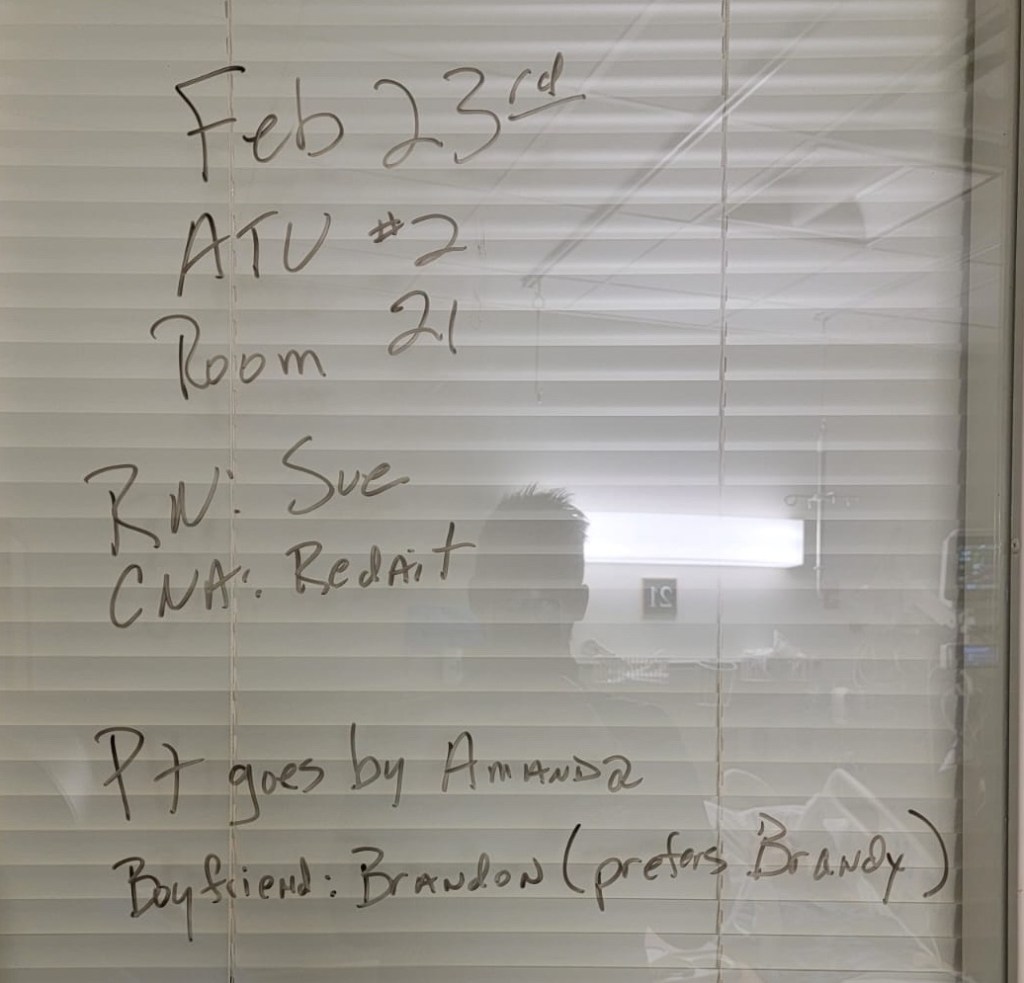 Feb 23rd
ATU #2
Room 21
RN: Sue
CNA: Redait
Pt goes by Amanda
Boyfriend: Brandon (prefers Brandy)
21